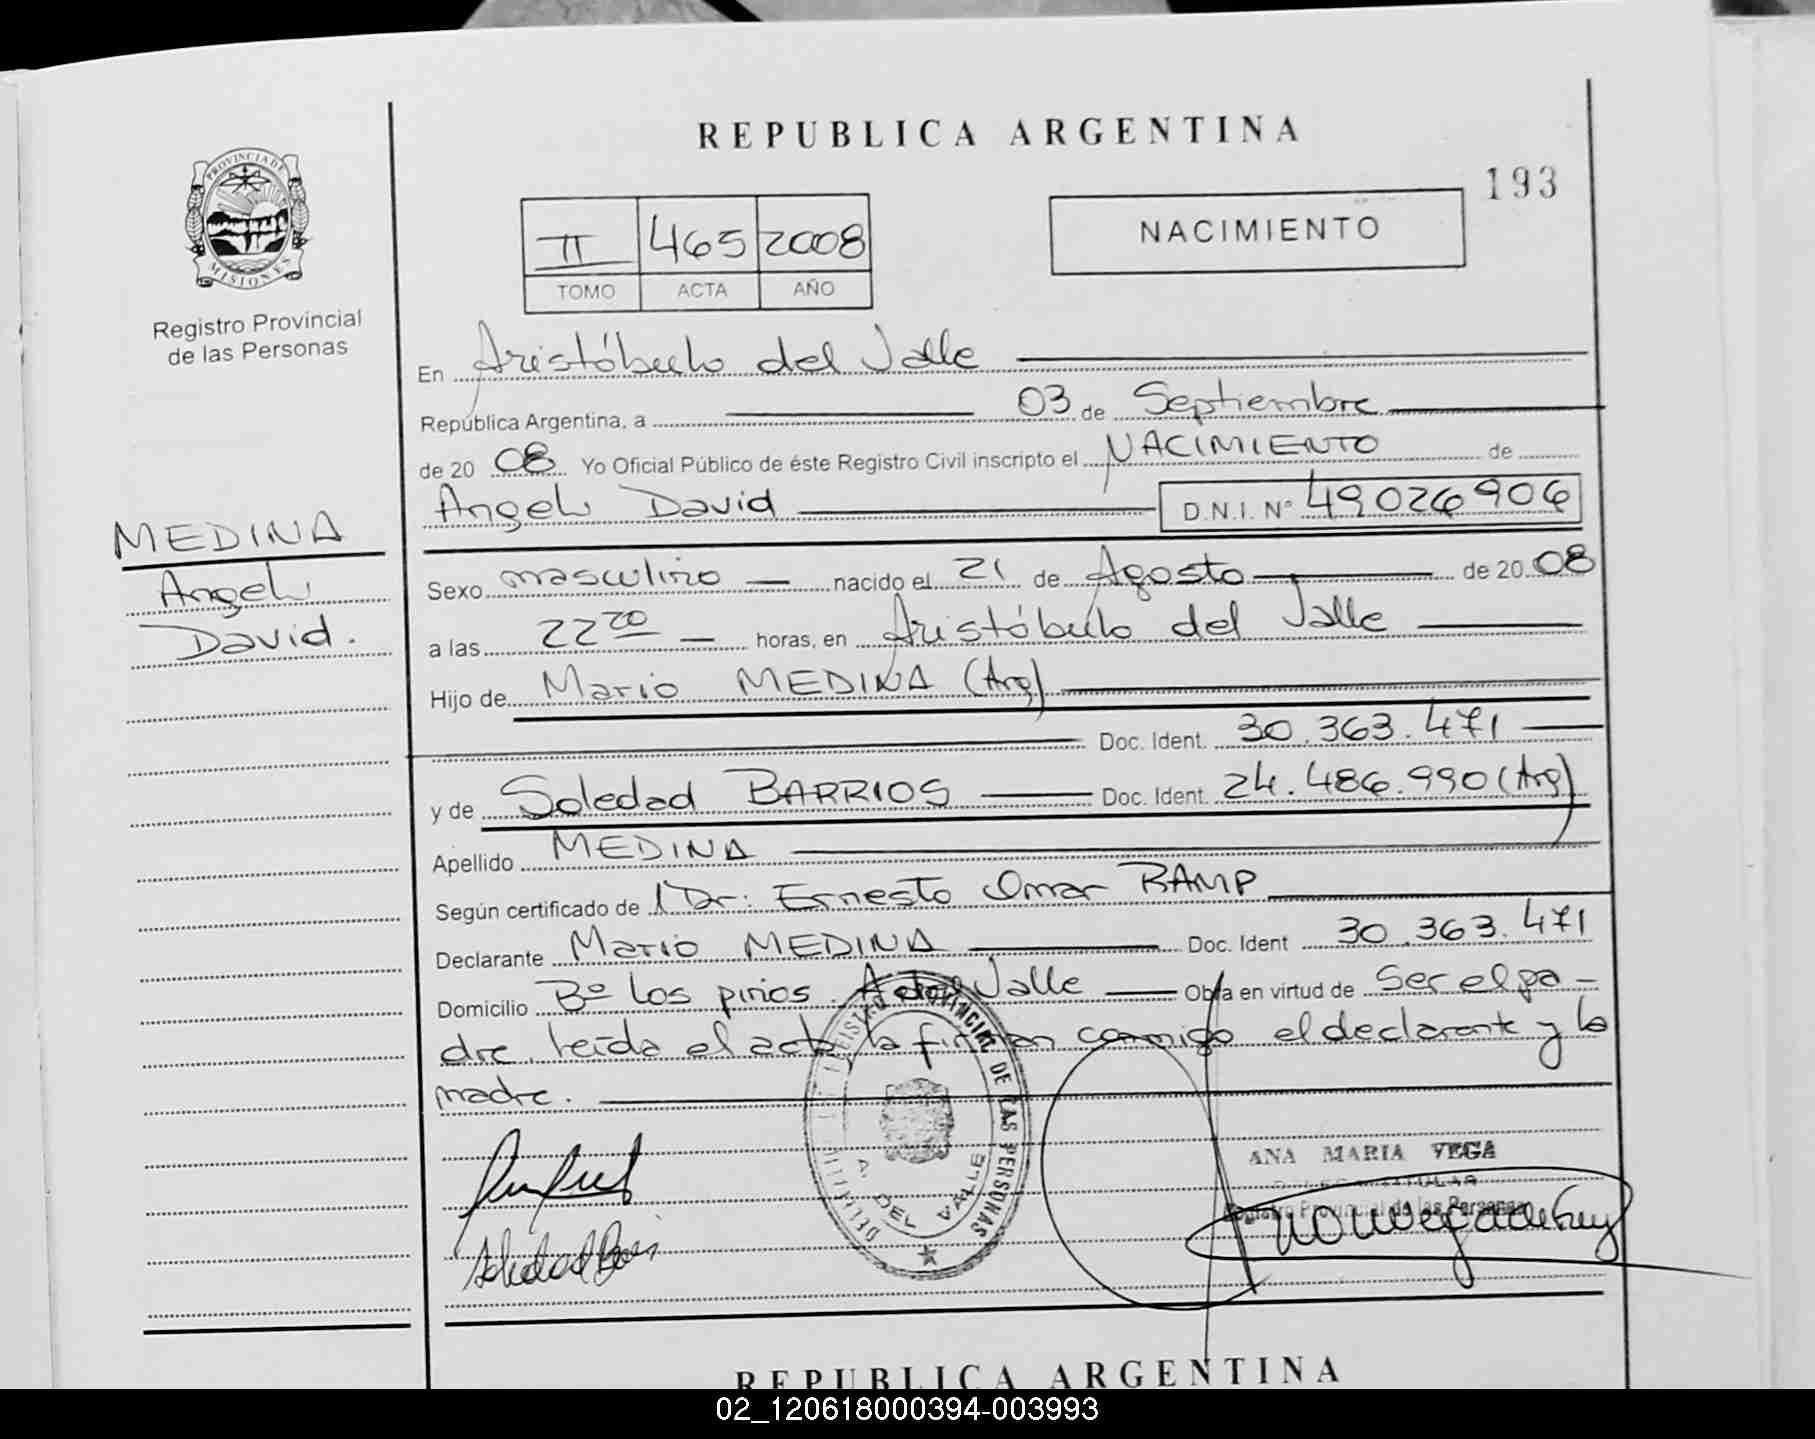 REPUBLICA ARGENTINA
193
PROVINCIA DE
MISIONES
Registro Provincial
de las Personas
II 465 2008
TOMO ACTA AÑO
NACIMIENTO
En Aristóbulo del Valle
República Argentina, a 03 de Septiembre
de 20 08 Yo Oficial Público de éste Registro Civil inscripto el NACIMIENTO de
Angel David D.N.I. Nº 49026906
MEDINA
Angel
David.
Sexo masculino nacido el 21 de Agosto de 20 08
a las 22 20 horas, en Aristóbulo del Valle
Hijo de Mario MEDINA (Arg)
Doc. Ident. 30.363.471
y de Soledad BARRIOS Doc. Ident. 24.486.990 (Arg)
Apellido MEDINA
Según certificado de Dr: Ernesto Omar RAMP
Declarante Mario MEDINA Doc. Ident 30.363.471
Domicilio Bº Los pinos. A del Valle Obra en virtud de Ser el pa-
dre. leída el acta la firman conmigo el declarante y la
madre.
REGISTRO PROVINCIAL DE LAS PERSONAS
A. DEL VALLE
ANA MARIA VEGA
DELEGADA TITULAR
Registro Provincial de las Personas
REPUBLICA ARGENTINA
02_120618000394-003993